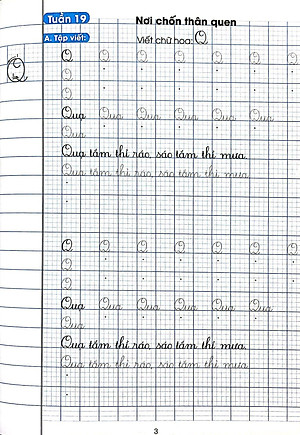 Tuần 19
Nơi chốn thân quen
A. Tập viết:
Viết chữ hoa: Q
Q
Q Q Q Q Q Q Q
Q
Q
Quạ Quạ Quạ Quạ Quạ Quạ
Quạ
Quạ tắm thì ráo, sáo tắm thì mưa.
Quạ tắm thì ráo, sáo tắm thì mưa.
Q Q Q Q Q Q Q
Q
Q
Quạ Quạ Quạ Quạ Quạ Quạ
Quạ
Quạ tắm thì ráo, sáo tắm thì mưa.
Quạ tắm thì ráo, sáo tắm thì mưa.
3